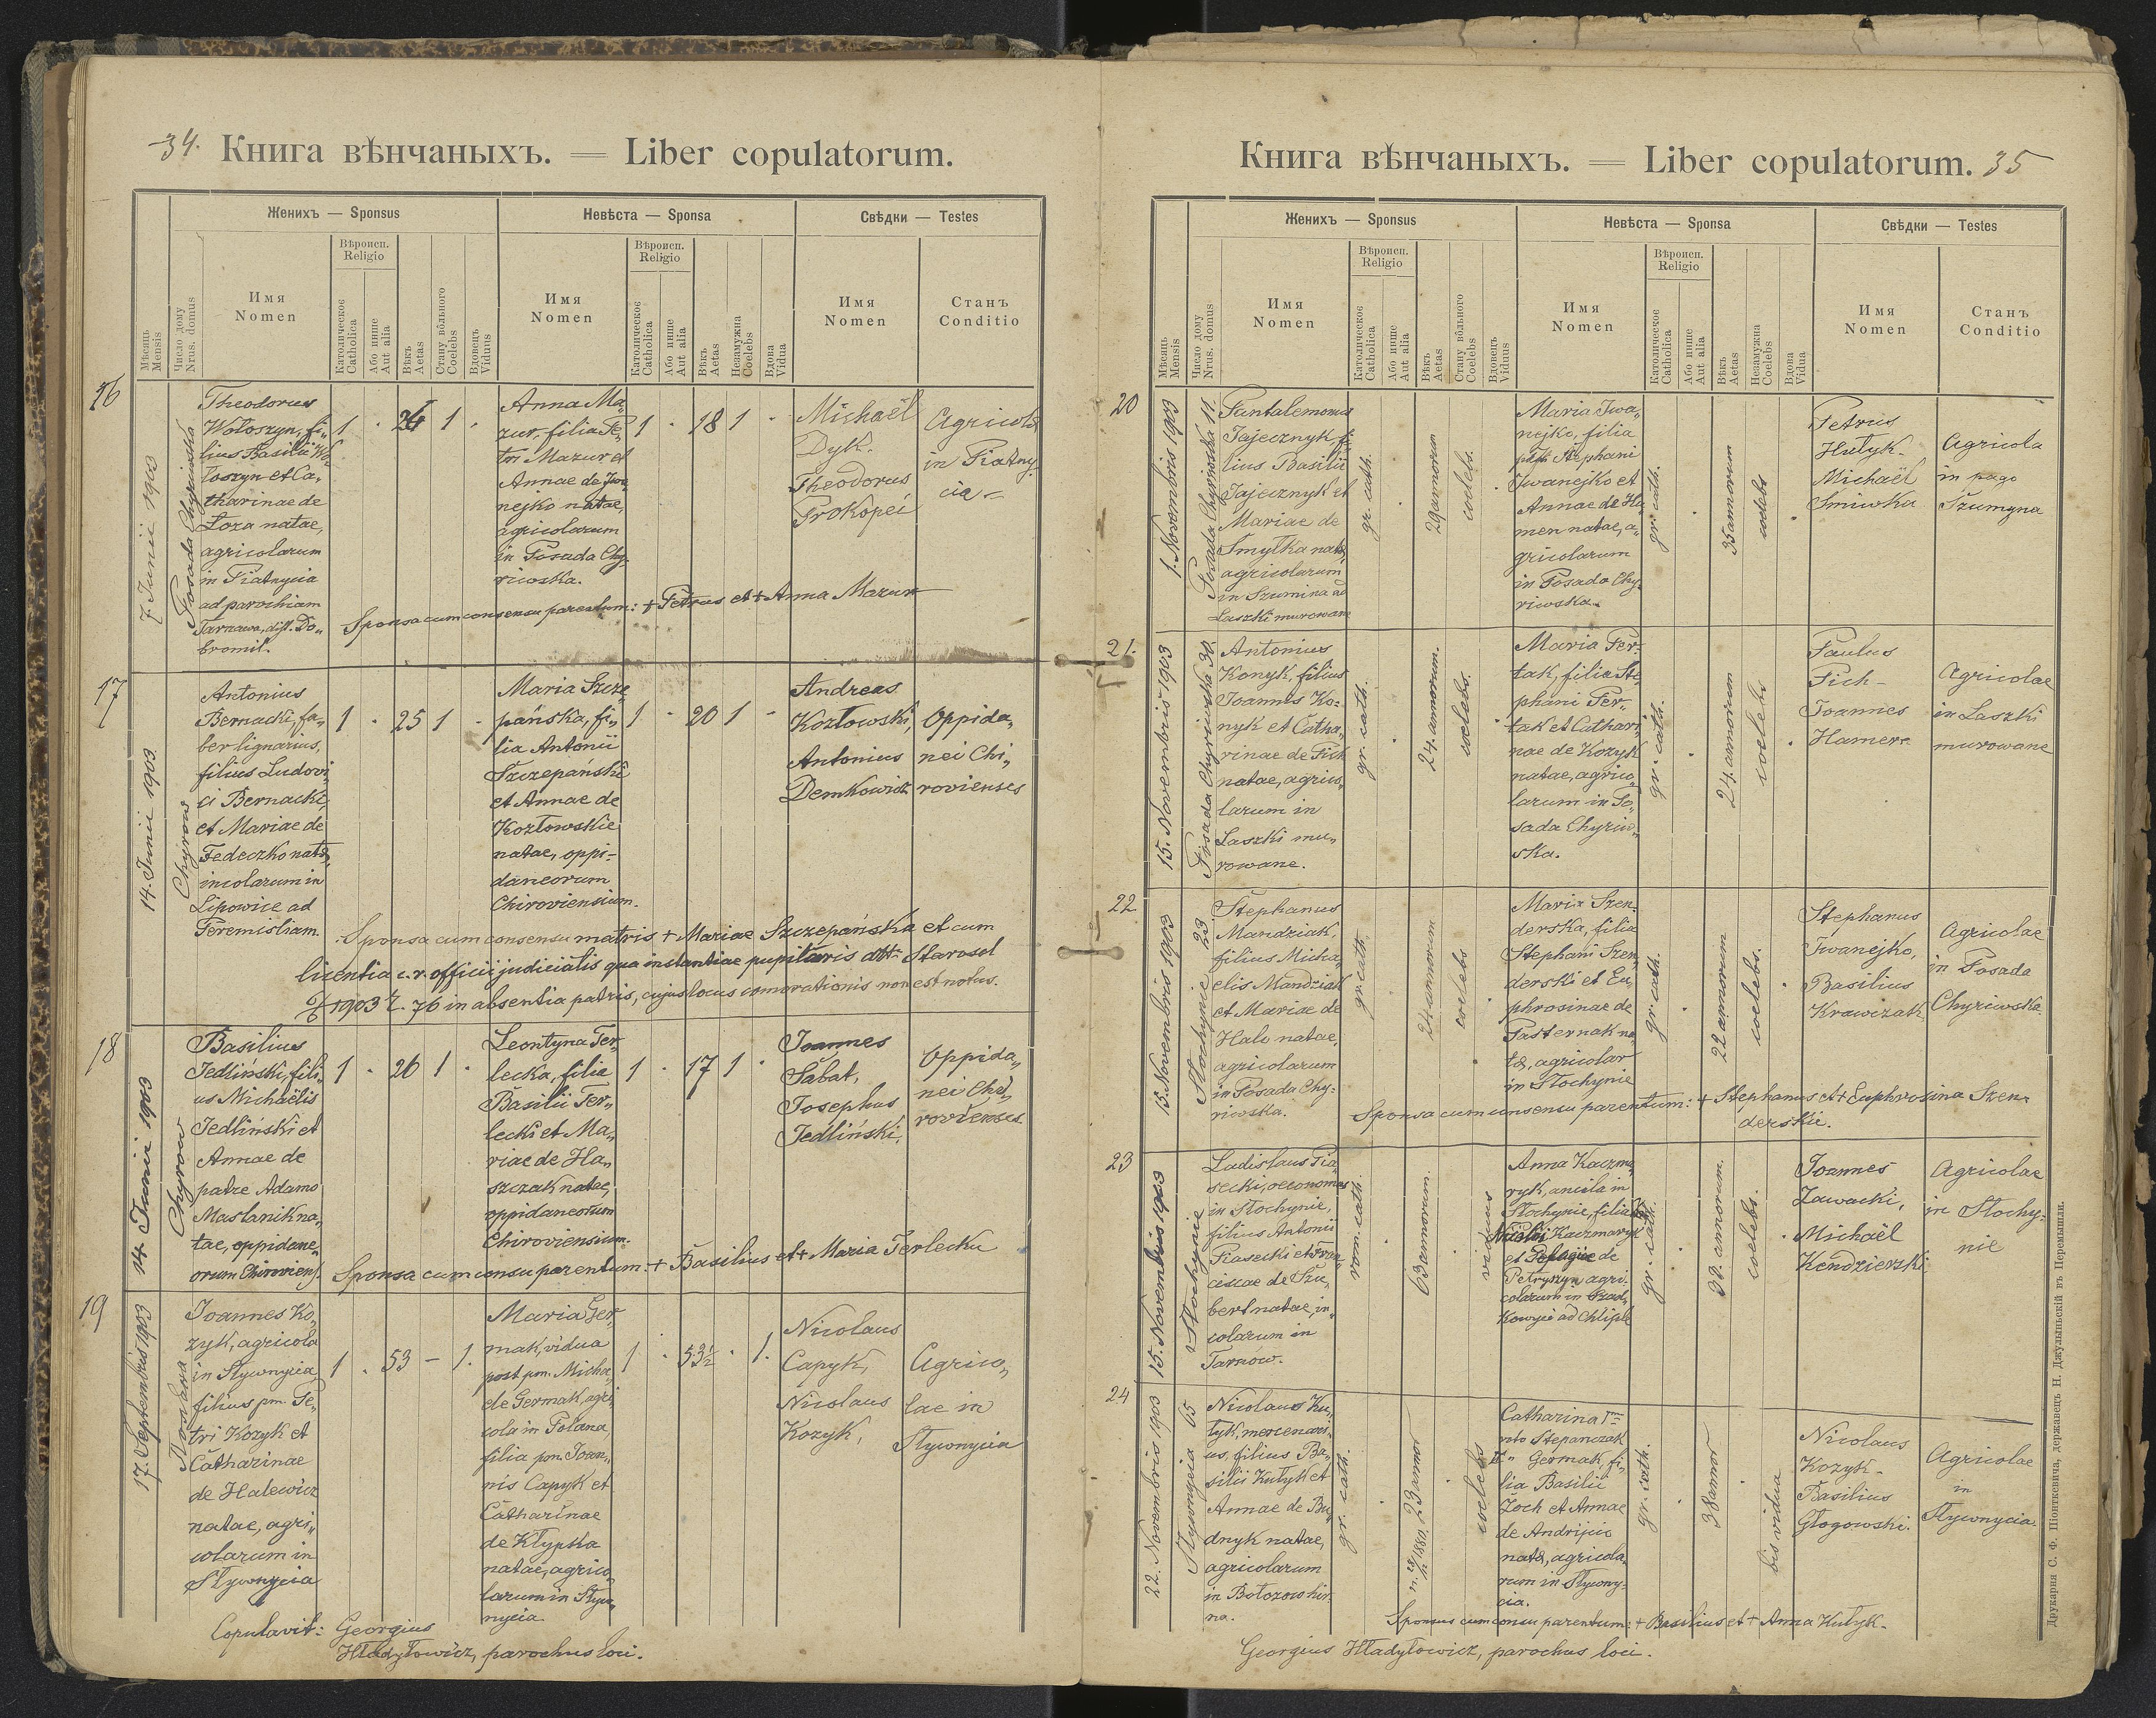 34. Книга вѣнчаныхъ. — Liber copulatorum.
Женихъ — Sponsus
Невѣста — Sponsa
Свѣдки — Testes
Мѣсяць Mensis
Число дому Nrus. domus
Имя Nomen
Вѣроисп. Religio
Католическое Catholica
Або инше Aut alia
Вѣкъ Aetas
Стану вôльного Coelebs
Вдовець Viduus
Имя Nomen
Вѣроисп. Religio
Католическое Catholica
Або инше Aut alia
Вѣкъ Aetas
Незамужна Coelebs
Вдова Vidua
Имя Nomen
Станъ Conditio
16
7. Junii 1903
Posada Chyriwska
Theodorus
Wołoszyn, fi„
lius Basilii Wo„
łoszyn et Ca„
tharinae de
Łoza natae,
agricolarum
in Piatnycia
ad parochiam
Tarnawa, dist. Do„
bromil.
1 . 24 1 .
Anna Ma„
zur, filia Pe„
tri Mazur et
Annae de Iwa„
nejko natae,
agricolarum
in Posada Chy„
riwska.
1 . 18 1 .
Michaël
Dyk.
Theodorus
Prokopei
Agricola
in Piatny„
cia
Sponsa cum consensu parentum: + Petrus et + Anna Mazur
17
14. Junii 1903.
Chyrow
Antonius
Bernacki, fa„
ber lignarius,
filius Ludovi„
ci Bernacki,
et Mariae de
Fedeczko natae,
incolarum in
Lipowice ad
Peremisliam.
1 . 25 1 .
Maria Szcze„
pańska, fi„
lia Antonii
Szczepański
et Annae de
Kozłowskie
natae, oppi–
daneorum
Chiroviensium.
1 . 20 1 .
Andreas
Kozłowski,
Antonius
Demkowicz
Oppida„
nei Chi„
rovienses
Sponsa cum consensu matris + Mariae Szczepańska et cum
licentia c. r. officii judicialis qua instantiae pupillaris dtt: Starasol
1903 L. 76 in absentia patris, cujus locus comorationis non est notus.
18
14 Junii 1903
Chyrow
Basilius
Jedliński, fili„
us Michaëlis
Jedliński et
Annae de
patre Adamo
Maslanik na„
tae, oppidane„
orum Chiroviens.
1 . 26 1 .
Leontyna Ter„
lecka, filia
Basilii Ter„
lecki et Ma„
riae de Ha„
szczak natae,
oppidaneorum
Chiroviensium.
1 . 17 1 .
Joannes
Sabat,
Josephus
Jedliński,
Oppida„
nei Chy„
rovienses
Sponsa cum consu parentum: + Basilius et + Maria Terlecku
19
17. Septembris 1903
Polana
Joannes Ko„
zyk, agricola
in Sływnycia
filius pm. Pe„
tri Kozyk et
Catharinae
de Halewicz
natae, agri„
colarum in
Sływnycia
1 . 53 – 1.
Maria Ger„
mak, vidua
post pm. Micha„
ele Germak, agri„
cola in Polana,
filia pm. Joan„
nis Capyk et
Catharinae
de Kłypka
natae, agrico„
larum in Sływ„
nycia
1 . 53½ . 1.
Nicolaus
Capyk,
Nicolaus
Kozyk,
Agrico„
lae in
Sływnycia
Copulavit: Georgius
Hładyłowicz, parochus loci.
Книга вѣнчаныхъ. — Liber copulatorum. 35
Женихъ — Sponsus
Невѣста — Sponsa
Свѣдки — Testes
Мѣсяць Mensis
Число дому Nrus. domus
Имя Nomen
Вѣроисп. Religio
Католическое Catholica
Або инше Aut alia
Вѣкъ Aetas
Стану вôльного Coelebs
Вдовець Viduus
Имя Nomen
Вѣроисп. Religio
Католическое Catholica
Або инше Aut alia
Вѣкъ Aetas
Незамужна Coelebs
Вдова Vidua
Имя Nomen
Станъ Conditio
20
1. Novembris 1903
Posada Chyriwska 11.
Pantalemonus
Jajecznyk, fi„
lius Basilii
Jajecznyk et
Mariae de
Smytka natae,
agricolarum
in Szumina ad
Laszki murowane
gr. cath.
29 annorum
coelebs.
Maria Iwa„
nejko, filia
Stephani
Iwanejko et
Annae de Ha„
men natae, a„
gricolarum
in Posada Chy„
riwska.
gr. cath.
35 annorum
coelebs
Petrus
Hutyk–
Michaël
Smiwka
Agricola
in pago
Szumyna
21.
15. Novembris 1903
Posada Chyriwska 30.
Antonius
Konyk, filius
Joannis Ko„
nyk et Catha„
rinae de Fich
natae, agrico„
larum in
Laszki mu„
rowane.
gr. cath.
24. annorum.
coelebs.
Maria Per„
tak, filia Ste„
phani Per„
tak et Cathari„
nae de Kozyk
natae, agrico„
larum in Po„
sada Chyriw„
ska.
gr. cath.
24. annorum
coelebs
Paulus
Fich–
Joannes
Hamera
Agricolae
in Laszki
murowane
22
15. Novembris 1903
Słochynie 23
Stephanus
Mandziak,
filius Micha„
elis Mandziak
et Mariae de
Hale natae,
agricolarum
in Posada Chy„
riwska.
gr. cath.
24 annorum
coelebs
Maria Szen„
derska, filia
Stephani Szen„
derski et Eu„
phrosinae de
Pasternak na„
tae, agricolar
in Słochynie
gr. cath.
22 annorum
coelebs.
Stephanus
Iwanejko,
Basilius
Krawczak,
Agricolae
in Posada
Chyriwska
Sponsa cum consensu parentum: + Stephanus et + Euphrosina Szen„
derskie.
23
15. Novembris 1903
Słochynie
Ladislaus Pia„
secki, oeconomus
in Słochynie,
filius Antonii
Piasecki et Fran„
ciscae de Szu„
bert natae, in„
colarum in
Tarnów.
rom. cath.
63 annorum.
viduus
Anna Kaczma„
ryk, ancila in
Słochynie, filia
Nicolai Kaczmaryk
et Pelagiae de
Petryszyn agri„
colarum in Szad„
kowyci ad Chliple
gr. cath.
38. annorum.
coelebs.
Joannes
Zawacki,
Michaël
Kendzierski
Agricolae
in Słochy„
nie
24
22. Novembris 1903
Sływnycia 65
Nicolaus Ku„
tyk, mercenari„
us, filius Ba„
silii Kutyk et
Annae de Bu„
dnyk natae,
agricolarum
in Bołozowhir„
na.
gr. cath.
23 annor
coelebs
Catharina Imo
voto Stepanczak
IIo Germak, fi„
lia Basilii
Zoch et Annae
de Andrijciw
natae, agricola„
rum in Sływny„
cia.
gr. cath.
38 annor
bis vidua
Nicolaus
Kozyk–
Basilius
Głogowski.
Agricolae
in
Sływnycia.
Sponsus cum consu parentum: + Basilius et + Anna Kutyk.
Georgius Hładyłowicz, parochus loci.
Друкарня С. Ф. Піонткевича, державець Н. Джулыньскій въ Перемышли.